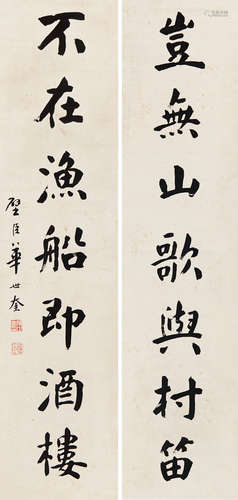 豈無山歌與村笛
不在漁船即酒樓
璧臣華世奎